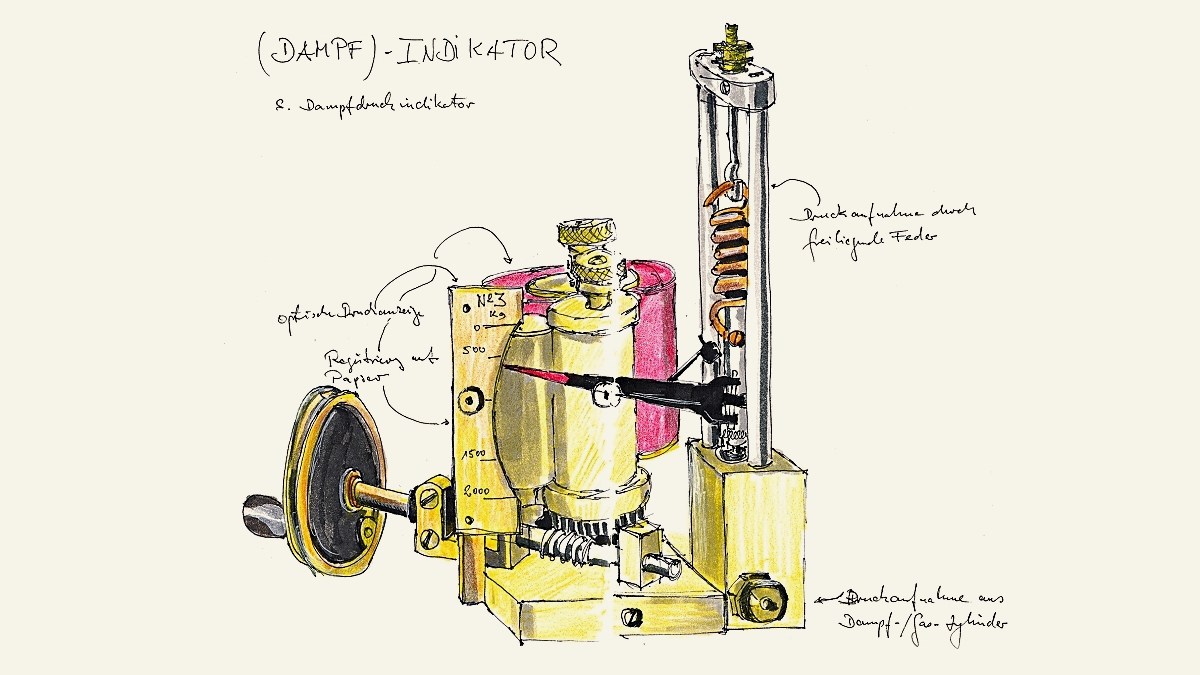 (DAMPF)-INDIKATOR
s. Dampfdruckindikator
Druckaufnahme durch
freiliegende Feder
optische Druckanzeige
Registrierung mit
Papier
№3
Kg
0
500
1500
2000
Druckaufnahme aus
Dampf-/Gas-Zylinder